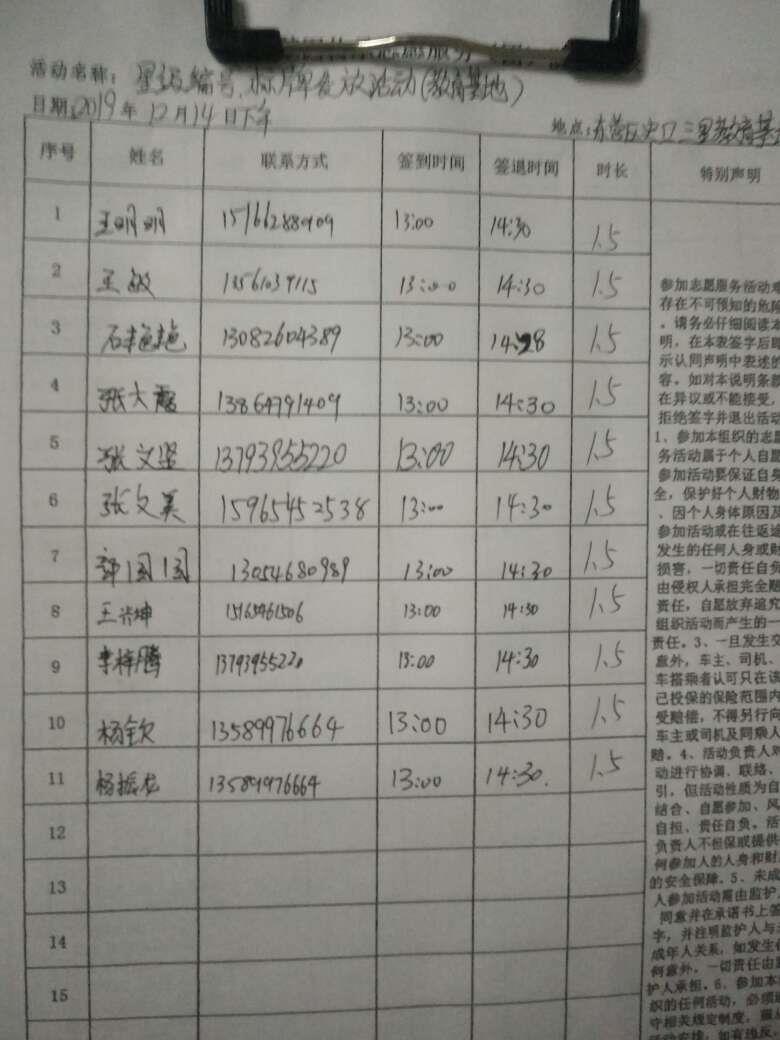 活动名称：星级编号、标牌发放活动(教育基地)
日期:2019年12月14日下午
地点:东营区史口三里教育基
序号 姓名 联系方式 签到时间 签退时间 时长 特别声明
1 王明明 13:00 14:30 1.5
2 王敏 13561039115 13:00 14:30 1.5
3 石艳艳 13082604389 13:00 14:28 1.5
4 张大霞 13864791409 13:00 14:30 1.5
5 张文坚 13793955220 13:00 14:30 1.5
6 张文美 15965452538 13:00 14:30 1.5
7 郭国国 13054680989 13:00 14:30 1.5
8 王兴坤 13:00 14:30 1.5
9 李梓腾 13793955220 13:00 14:30 1.5
10 杨钦 13589976664 13:00 14:30 1.5
11 杨振龙 13589976664 13:00 14:30. 1.5
12
13
14
15
参加志愿服务活动难
存在不可预知的危险
，请务必仔细阅读本
明，在本表签字后即
示认同声明中表述的
容。如对本说明条款
在异议或不能接受，
拒绝签字并退出活动
1、参加本组织的志愿
务活动属于个人自愿
参加活动要保证自身
全，保护好个人财物
、因个人身体原因及
参加活动或在往返途
发生的任何人身或财
损害，一切责任自负
由侵权人承担完全赔
责任，自愿放弃追究
组织活动而产生的一
责任。3、一旦发生交
意外，车主、司机、
车搭乘者认可只在该
己投保的保险范围内
受赔偿，不得另行向
车主或司机及同乘人
赔。4、活动负责人对
动进行协调、联络、
引，但活动性质为自
结合、自愿参加、风
自担、责任自负。活
负责人不担保或提供
何参加人的人身和财
的安全保障。5、未成
人参加活动需由监护
同意并在承诺书上签
字，并注明监护人与未
成年人关系，如发生任
何意外，一切责任由监
护人承担。6、参加本
织的任何活动，必须遵
守相关规定制度，服从
活动安排，如有违反，